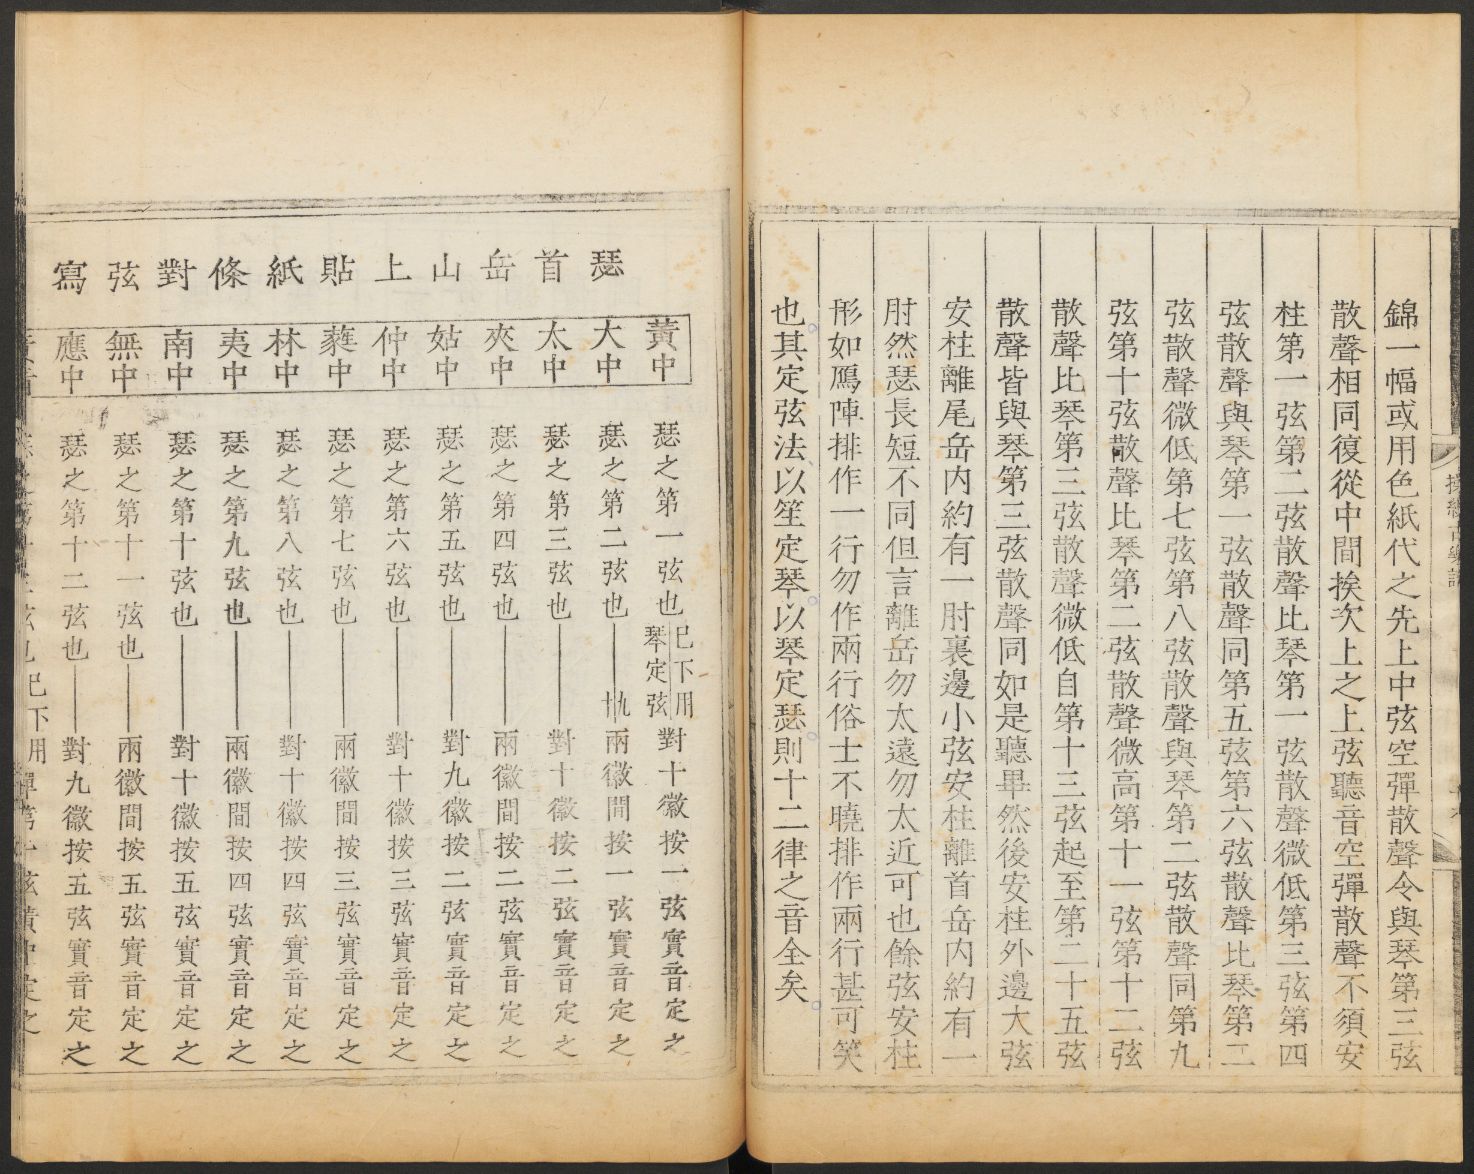 錦一幅或用色紙代之先上中弦空彈散聲令與琴第三弦
散聲相同復從中間挨次上之上弦聽音空彈散聲不須安
柱第一弦第二弦散聲比琴第一弦散聲微低第三弦第四
弦散聲與琴第一弦散聲同第五弦第六弦散聲比琴第二
弦散聲微低第七弦第八弦散聲與琴第二弦散聲同第九
弦第十弦散聲比琴第二弦散聲微高第十一弦第十二弦
散聲比琴第三弦散聲微低自第十三弦起至第二十五弦
散聲皆與琴第三弦散聲同如是聽畢然後安柱外邊大弦
安柱離尾岳內約有一肘裏邊小弦安柱離首岳內約有一
肘然瑟長短不同但言離岳勿太遠勿太近可也餘弦安柱
形如鴈陣排作一行勿作兩行俗士不曉排作兩行甚可笑
也其定弦法以笙定琴以琴定瑟則十二律之音全矣
瑟首岳山上貼紙條對弦寫
黃中 瑟之第一弦也 已下用琴定弦 對十徽按一弦實音定之
大中 瑟之第二弦也 九十 兩徽間按一弦實音定之
太中 瑟之第三弦也 對十徽按二弦實音定之
夾中 瑟之第四弦也 兩徽間按二弦實音定之
姑中 瑟之第五弦也 對九徽按二弦實音定之
仲中 瑟之第六弦也 對十徽按三弦實音定之
蕤中 瑟之第七弦也 兩徽間按三弦實音定之
林中 瑟之第八弦也 對十徽按四弦實音定之
夷中 瑟之第九弦也 兩徽間按四弦實音定之
南中 瑟之第十弦也 對十徽按五弦實音定之
無中 瑟之第十一弦也 兩徽間按五弦實音定之
應中 瑟之第十二弦也 對九徽按五弦實音定之